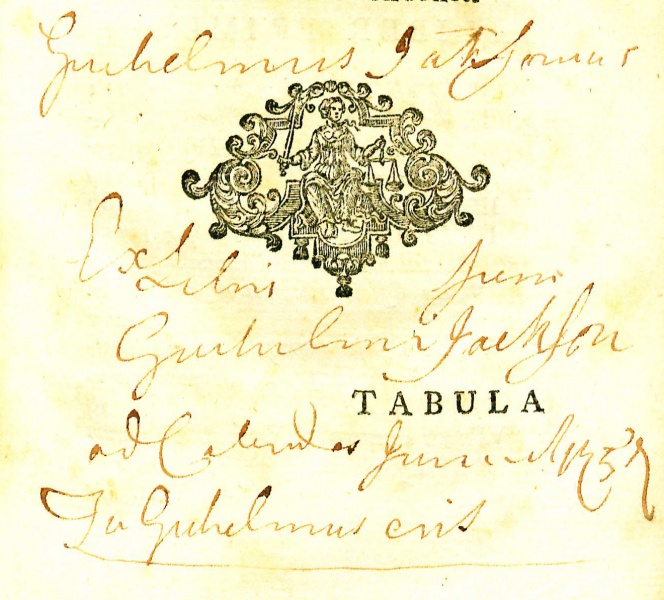 Guihelmus Jacksonus
Ex Libris
Guihelmi Jackson
TABULA
ad Calendas Junii
Guihelmus erit